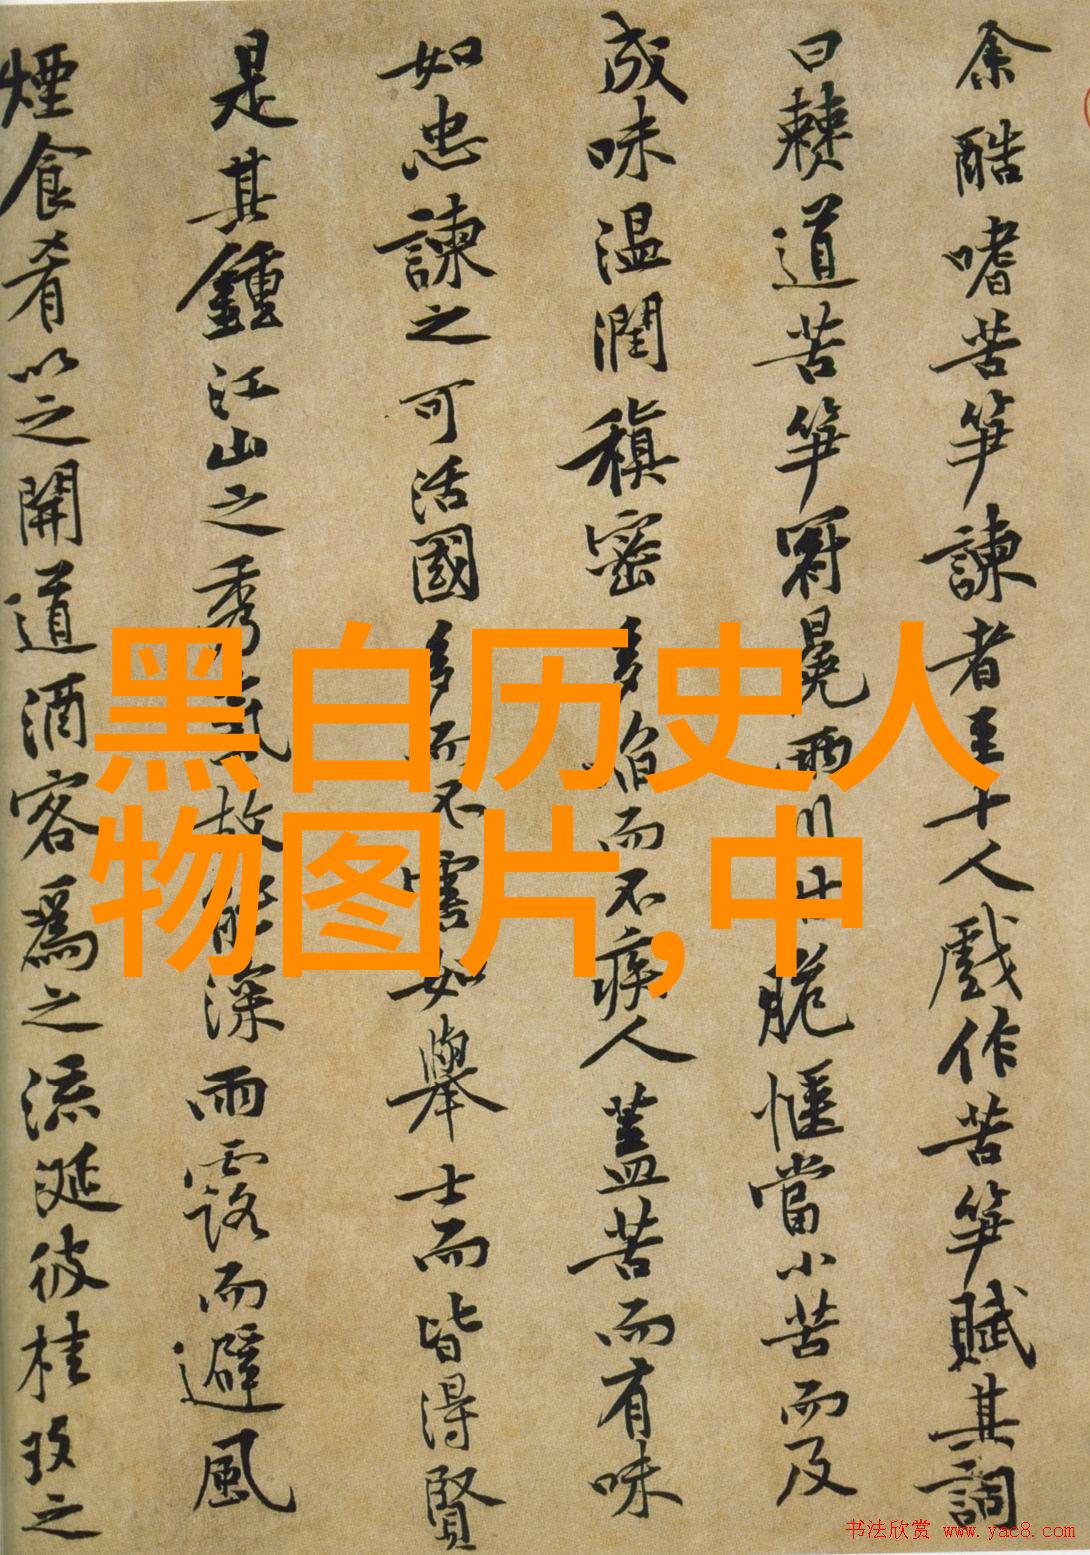 余酷嗜苦笋諫者至十人戲作苦笋賦其詞
曰僰道苦笋冠冕兩川甘脆愜當小苦而及
成味温潤稹密多啗而不疾人蓋苦而有味
如忠諫之可活國多而不害如舉士而皆得賢
是其鍾江山之秀氣故能深雨露而避風
煙食肴以之開道酒客爲之流涎彼桂玫之
黑白历史人
物图片,中
书法欣赏 www.yac8.com